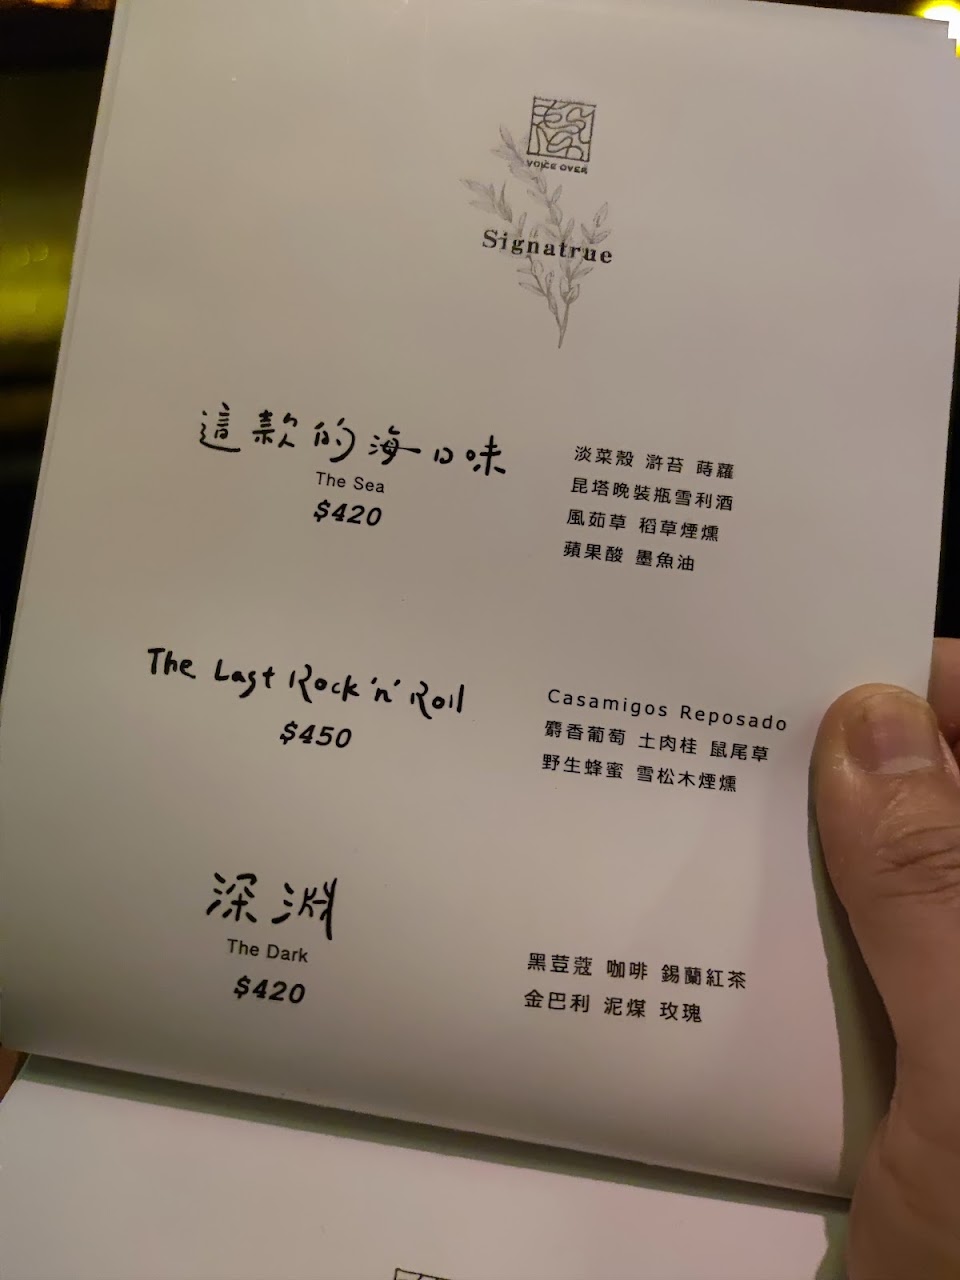 VOICE OVER
Signatrue
這款的海口味
The Sea
$420
淡菜殼 滸苔 蒔蘿
昆塔晚裝瓶雪利酒
風茹草 稻草煙燻
蘋果酸 墨魚油
The Last Rock 'n' Roll
$450
Casamigos Reposado
麝香葡萄 土肉桂 鼠尾草
野生蜂蜜 雪松木煙燻
深淵
The Dark
$420
黑荳蔻 咖啡 錫蘭紅茶
金巴利 泥煤 玫瑰